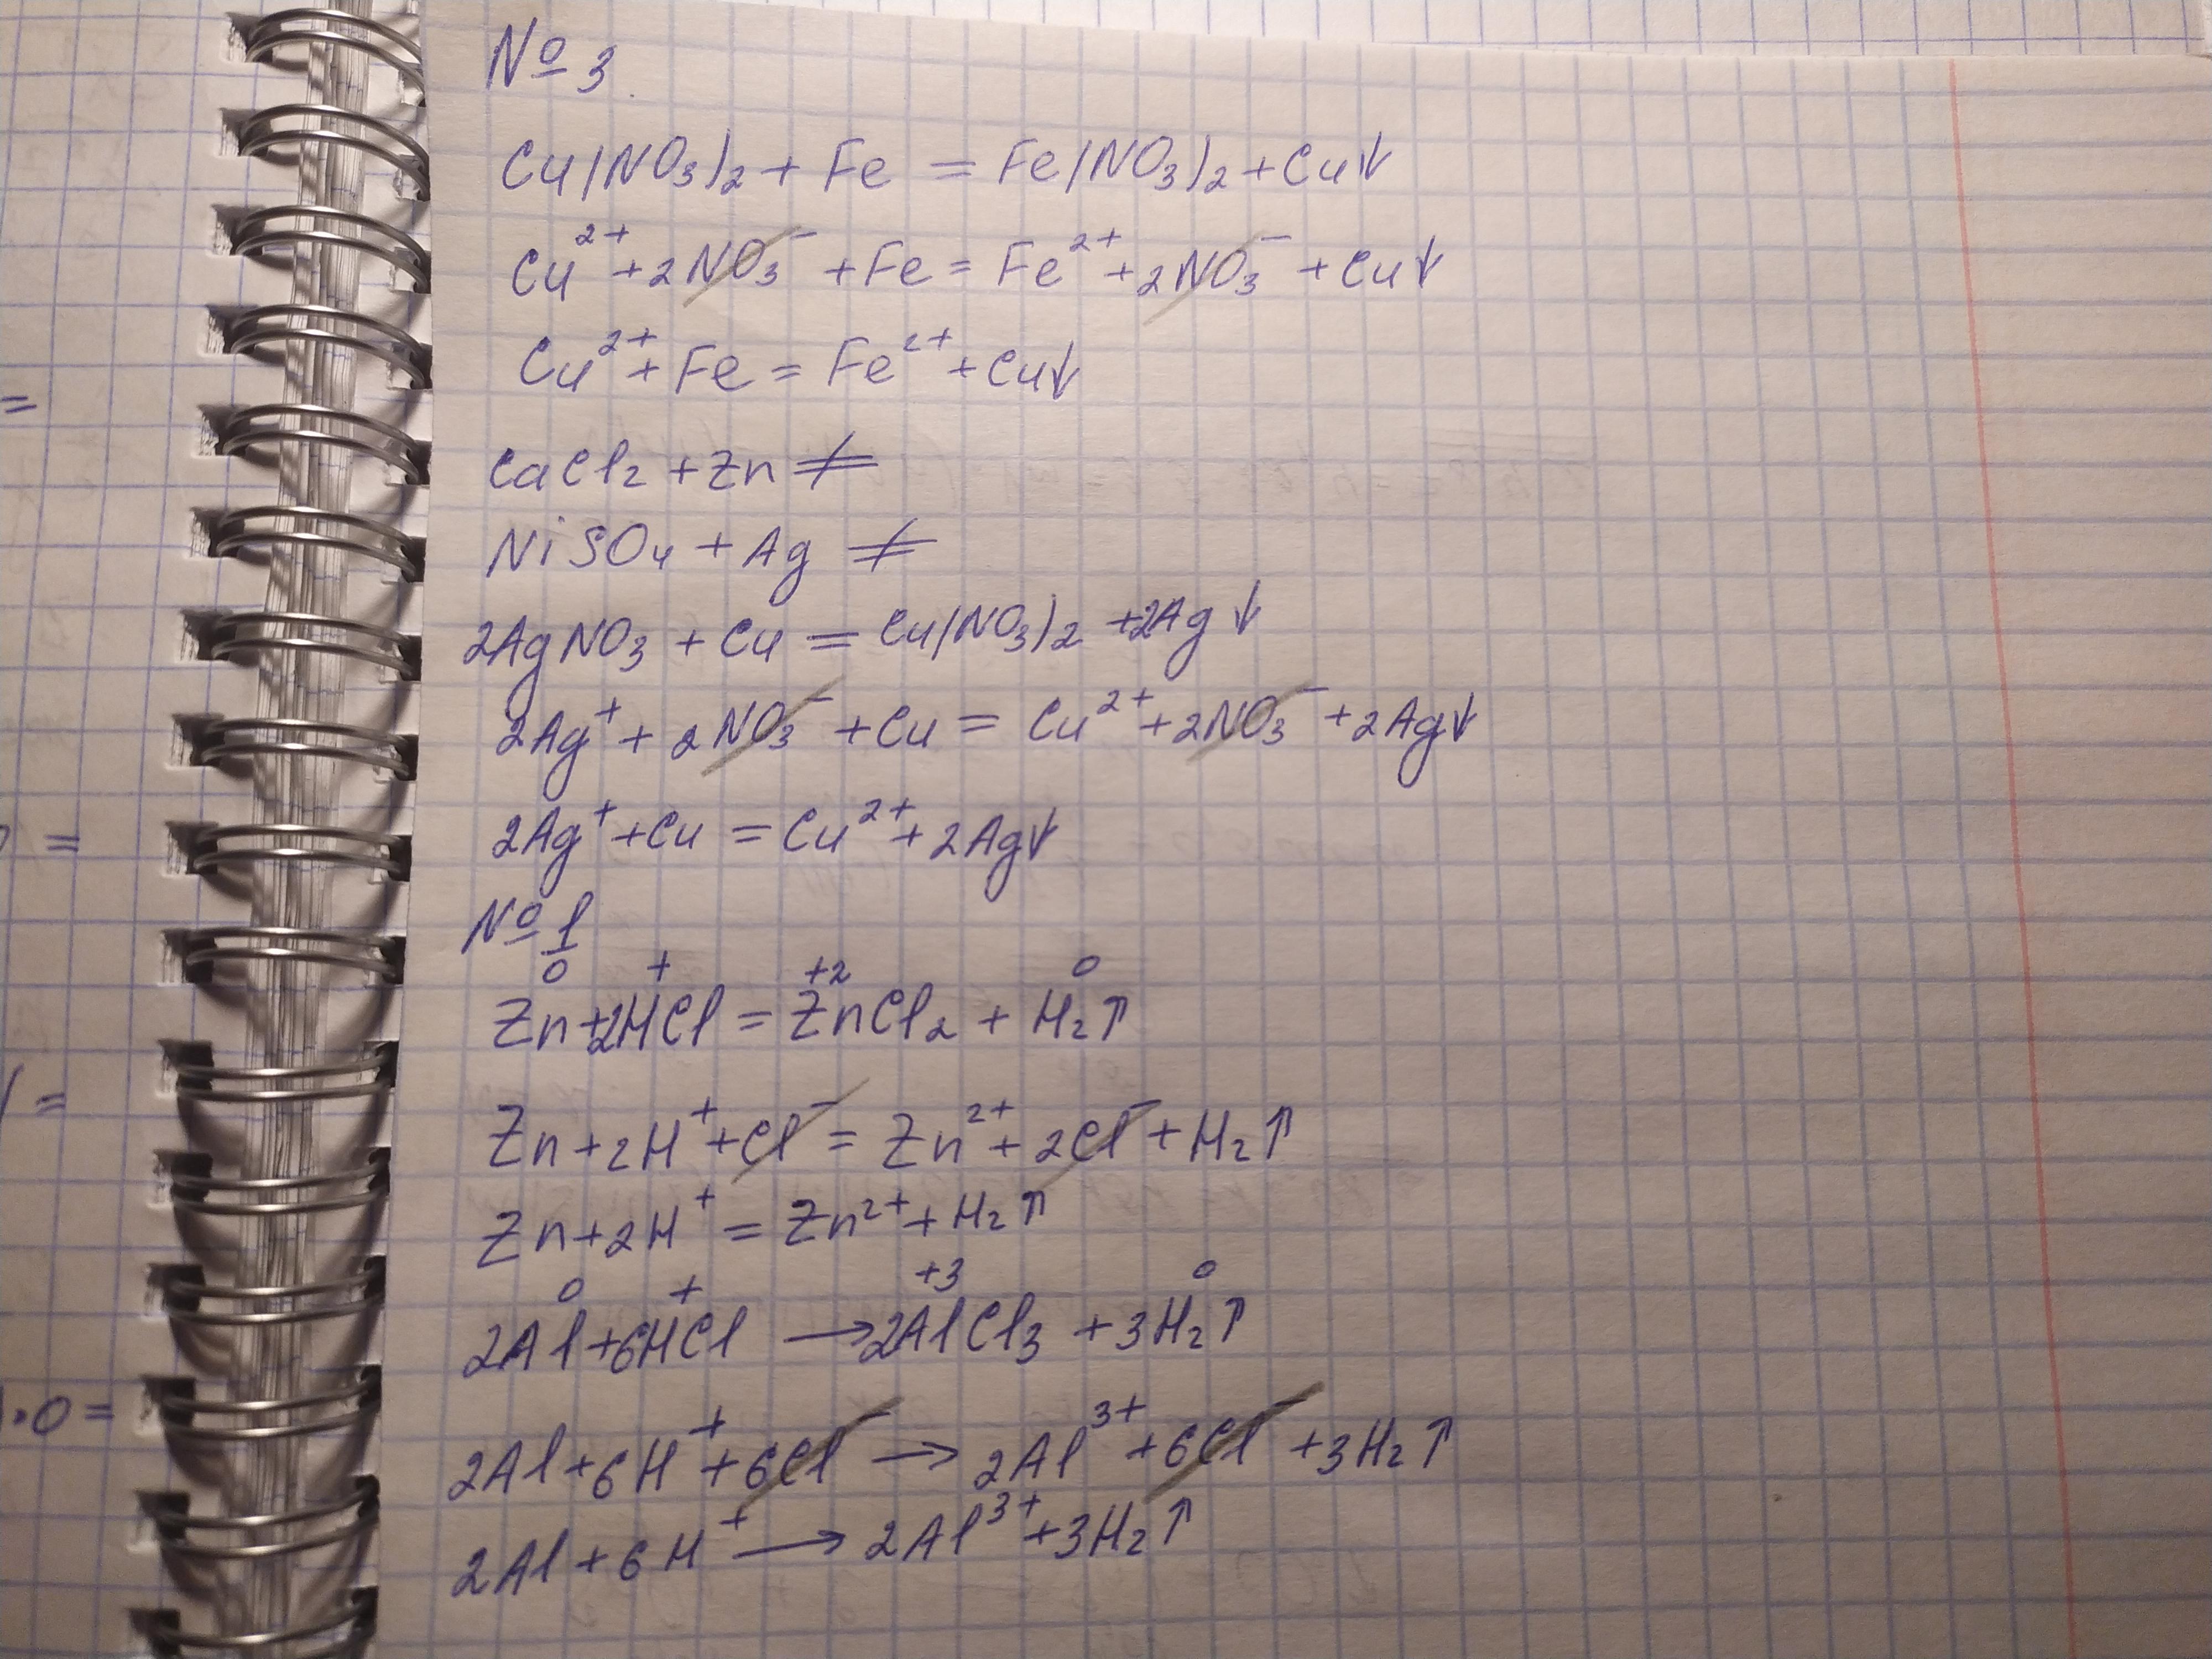 № 3.
Cu(NO₃)₂ + Fe = Fe(NO₃)₂ + Cu↓
Cu²⁺ + 2NO₃⁻ + Fe = Fe²⁺ + 2NO₃⁻ + Cu↓
Cu²⁺ + Fe = Fe²⁺ + Cu↓
CaCl₂ + Zn ≠
NiSO₄ + Ag ≠
2AgNO₃ + Cu = Cu(NO₃)₂ + 2Ag↓
2Ag⁺ + 2NO₃⁻ + Cu = Cu²⁺ + 2NO₃⁻ + 2Ag↓
2Ag⁺ + Cu = Cu²⁺ + 2Ag↓
№ 1
0 + +2 0
Zn + 2HCl = ZnCl₂ + H₂↑
Zn + 2H⁺ + Cl⁻ = Zn²⁺ + 2Cl⁻ + H₂↑
Zn + 2H⁺ = Zn²⁺ + H₂↑
0 + +3 0
2Al + 6HCl → 2AlCl₃ + 3H₂↑
2Al + 6H⁺ + 6Cl⁻ → 2Al³⁺ + 6Cl⁻ + 3H₂↑
2Al + 6H⁺ → 2Al³⁺ + 3H₂↑